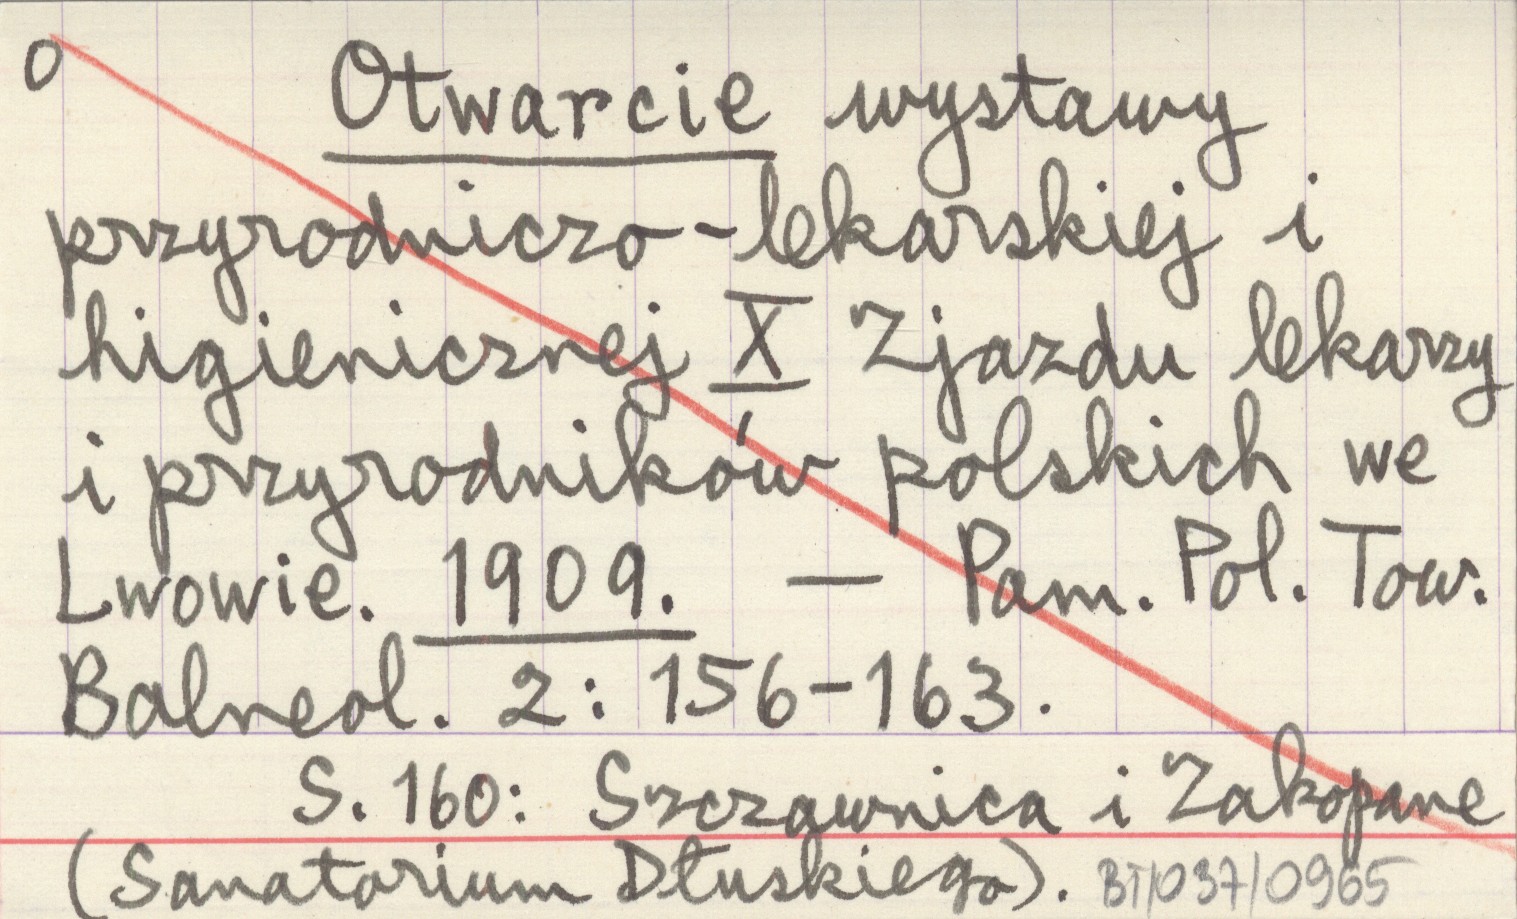 O Otwarcie wystawy
przyrodniczo-lekarskiej i
higienicznej X Zjazdu lekarzy
i przyrodników polskich we
Lwowie. 1909. — Pam. Pol. Tow.
Balneol. 2: 156-163.
S. 160: Szczawnica i Zakopane
(Sanatorium Dłuskiego). BT/037/0965